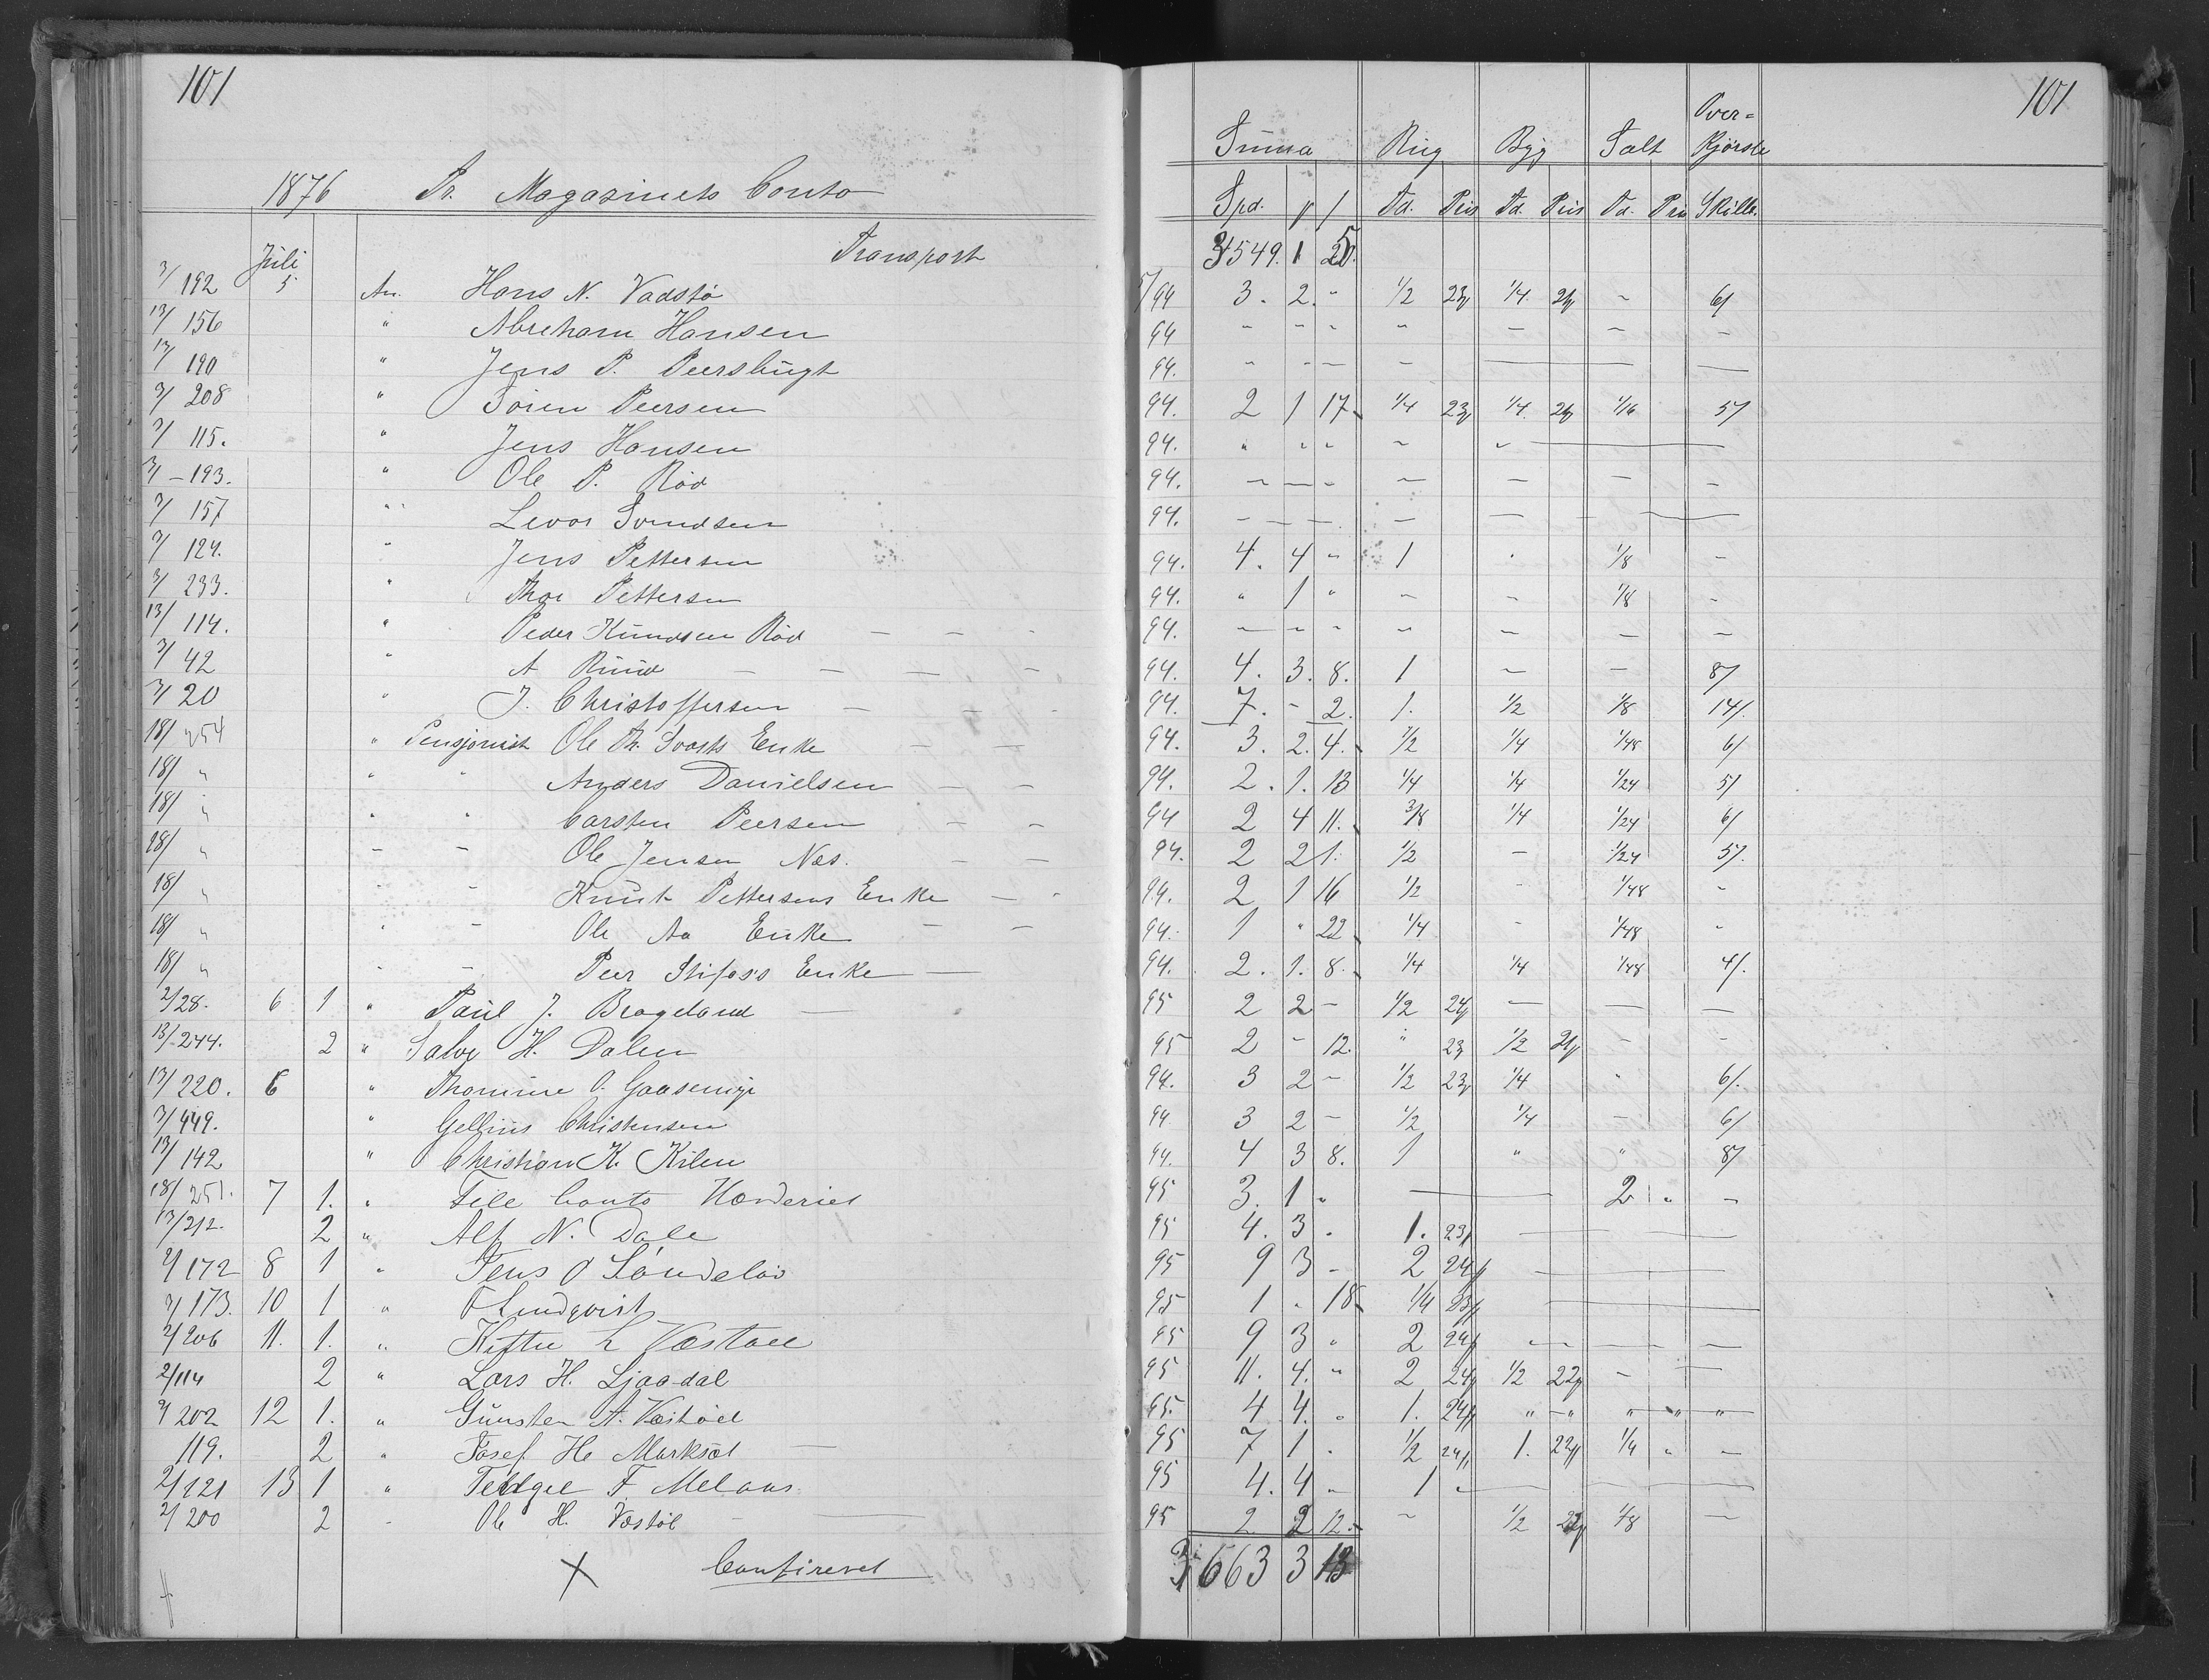 101
1876 Pr. Magazinets Conto
Juli Transport
3/192 5 An. Hans N. Vadstø
13/156 " Abreham Hansen
13/190 " Jens P. Peersbugt
3/208 " Sören Peersen
3/115. " Jens Hansen
3/-193. " Ole P. Röd
3/157 " Levor Svendsen
3/124. " Jens Pettersen
3/233. " Thor Pettersen
13/114. " Peder Knudsen Röd — — -
3/42 " A Ruud — — — -
3/20 " J. Christoffersen — — -
18/254 " Pensjonist Ole Th. Enke — —
18/ " " " Anders Danielsen — —
18/ " " " Carsten Peersen — —
18/ " - - Ole Jensen Næs. — —
18/ " - - Knut Pettersens Enke — -
18/ " " - Ole Aa Enke — —
18/ " - - Peer Enke —
2/28. 6 1 " Paul J. Brageland —
13/-244. 2 " Salve H. Dalen
13/220. 6 " Thomine O.
3/449. " Gellius Christensen
13/142 " Christian K. Kilen
18/251. 7 1. " Fele Conto
13/212. 2 " Alf N. Dale
2/172 8 1 " Jens O Söndeløv
3/173. 10 1 " F Lindqvist
2/206 11. 1. " L
2/114 2 " Lars H. Ljaadal
2/202 12 1. " Gunsten A.
119. 2 " Josef He —
2/121 13 1 " F. Melaas
2/200 2 - Ole H. Vestöl — —
X Confireret
101
Summa Rug Byg Salt Over=
Kjørsle
Spd. Td. Pris Td. Pris Td. Pris Skill.
3549. 1
5/94 3. 2. " 1/2 23 1/4. ~ 6/
94 " " " " — — —
94. " — — — — —
94. 2 1 17 1/4 23 1/4. 1/16 5/
94. " " " ~ " —
94. — — " — — — —
94. — — — — — — —
94. 4. 4 " 1 . 1/8 —
94. " 1 " — — 1/8 —
94. — — — — — — —
94. 4. 3. 8. 1 — — 8/
94. 7. - 2. 1. 1/2 1/8 14/.
94. 3. 2. 4. 1/2 1/4 1/48 6/
94. 2. 1. 13 1/4 1/4 1/24 5/
94 2 4 11. 3/8 1/4 1/24 6/
94. 2 2 1. 1/2 — 1/24 5/.
94. 2 1 16 1/2 - 1/48 —
94. 1 " 22 1/4 - 1/48 "
94. 2. 1. 8. 1/4 1/4 1/48 4/.
95 2 2 — 1/2 24 — — —
95 2 - 12. " 23 1/2 21 - -
94. 3 2 — 1/2 23 1/4 " 6/.
94 3 2 — 1/2 1/4 — 6/
94. 4 3 8. 1 " " 8/
95 3. 1 " — 2 " —
95 4. 3 . 1. 23 — —
95 9 3 - 2 24 — —
95 1 " 18 1/4 23 —
95 9 3 " 2 24 — — —
95 11. 4. " 2 24 1/2 22 — —
95. 4 4. " 1. 24 " — " " — " "
95 7 1 . 1/2 24 1. 22 1/4 " —
95 4. 4 " 1 " — —
95 2 2 12. — 1/2 22 1/8 —
3663 3 13